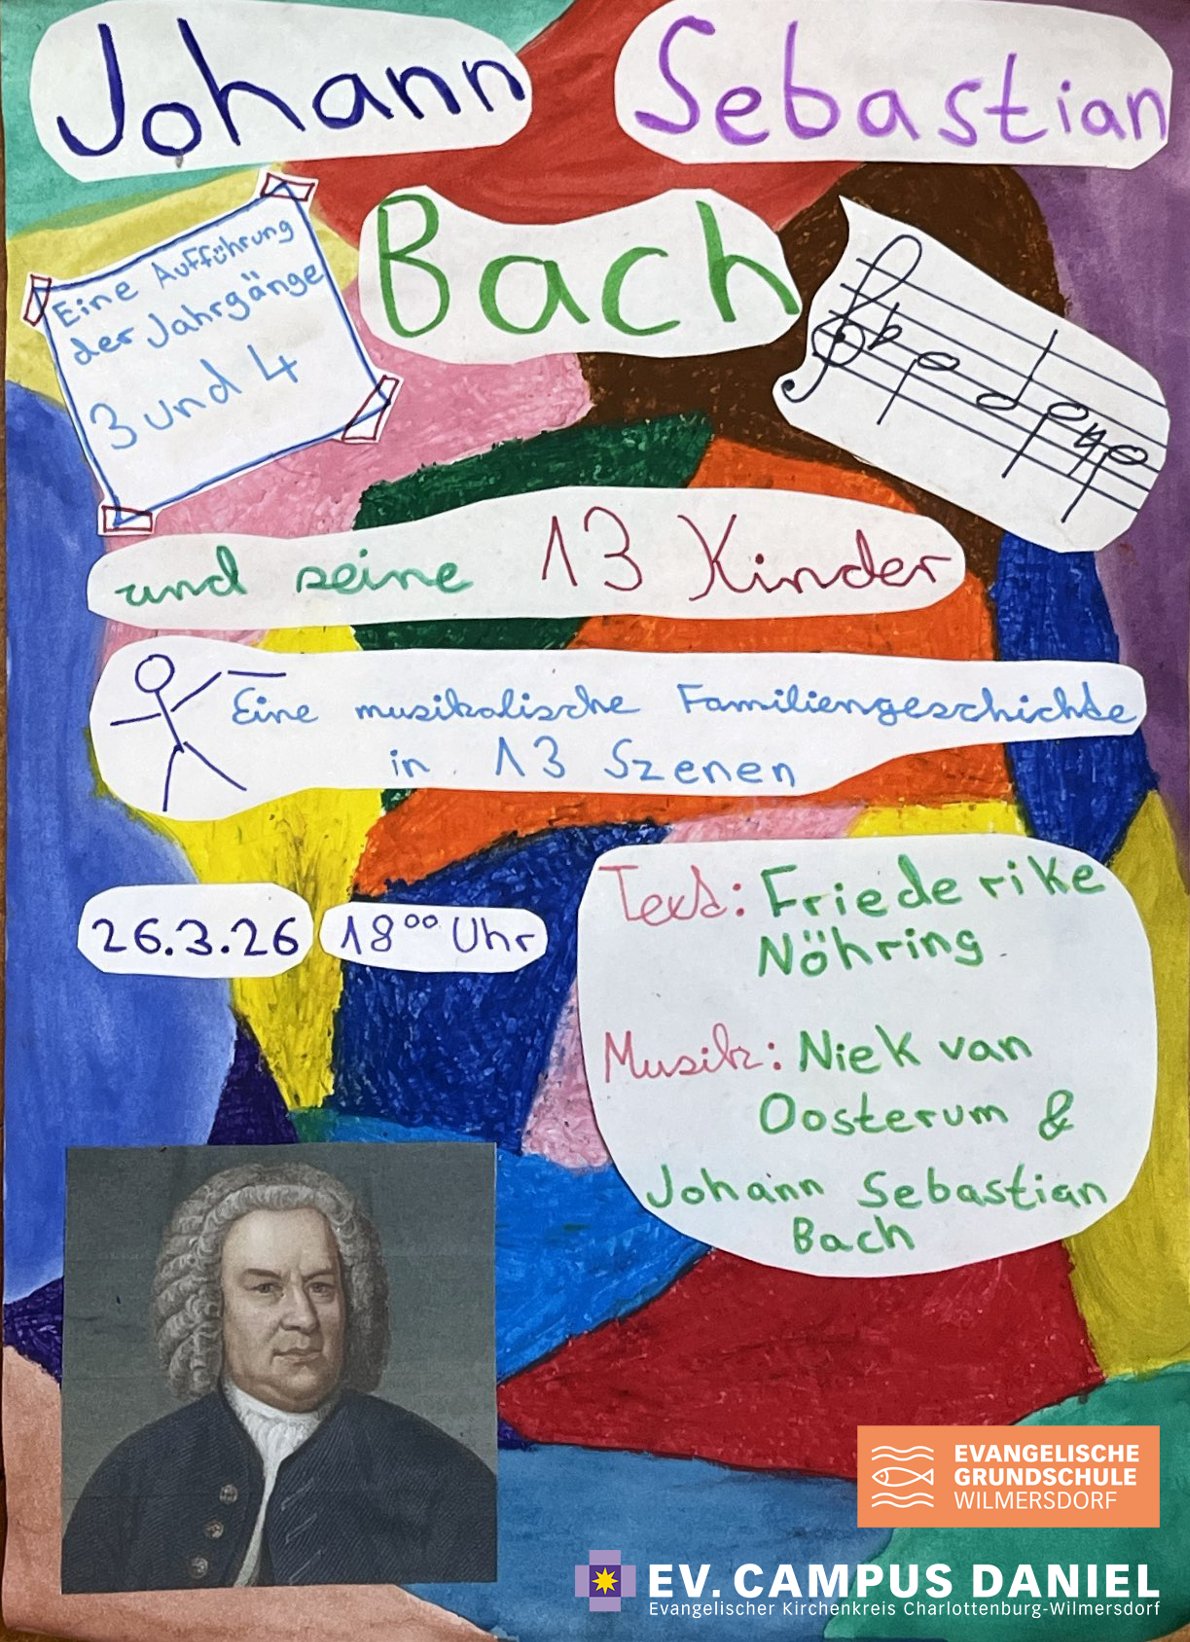 Johann
Sebastian
Bach
Eine Aufführung
der Jahrgänge
3 und 4
und seine 13 Kinder
Eine musikalische Familiengeschichte
in 13 Szenen
26.3.26
18⁰⁰ Uhr
Text: Friederike
Nöhring
Musik: Niek van
Oosterum &
Johann Sebastian
Bach
EVANGELISCHE
GRUNDSCHULE
WILMERSDORF
EV. CAMPUS DANIEL
Evangelischer Kirchenkreis Charlottenburg-Wilmersdorf